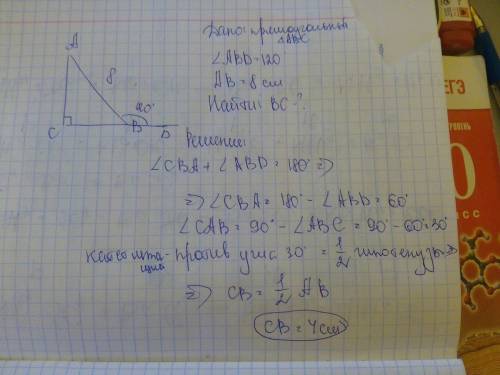 Дано: прямоугольный
△ABC
∠ABD=120°
AB = 8 см
Найти: BC-?
A
8
120°
C
B
D
Решение:
∠CBA + ∠ABD = 180° ⇒
⇒ ∠CBA = 180° - ∠ABD = 60°
∠CAB = 90° - ∠ABC = 90° - 60° = 30°
Катет лежа-
щий против угла 30° = 1/2 гипотенузы ⇒
⇒ CB = 1/2 AB
CB = 4 см
ЕГЭ